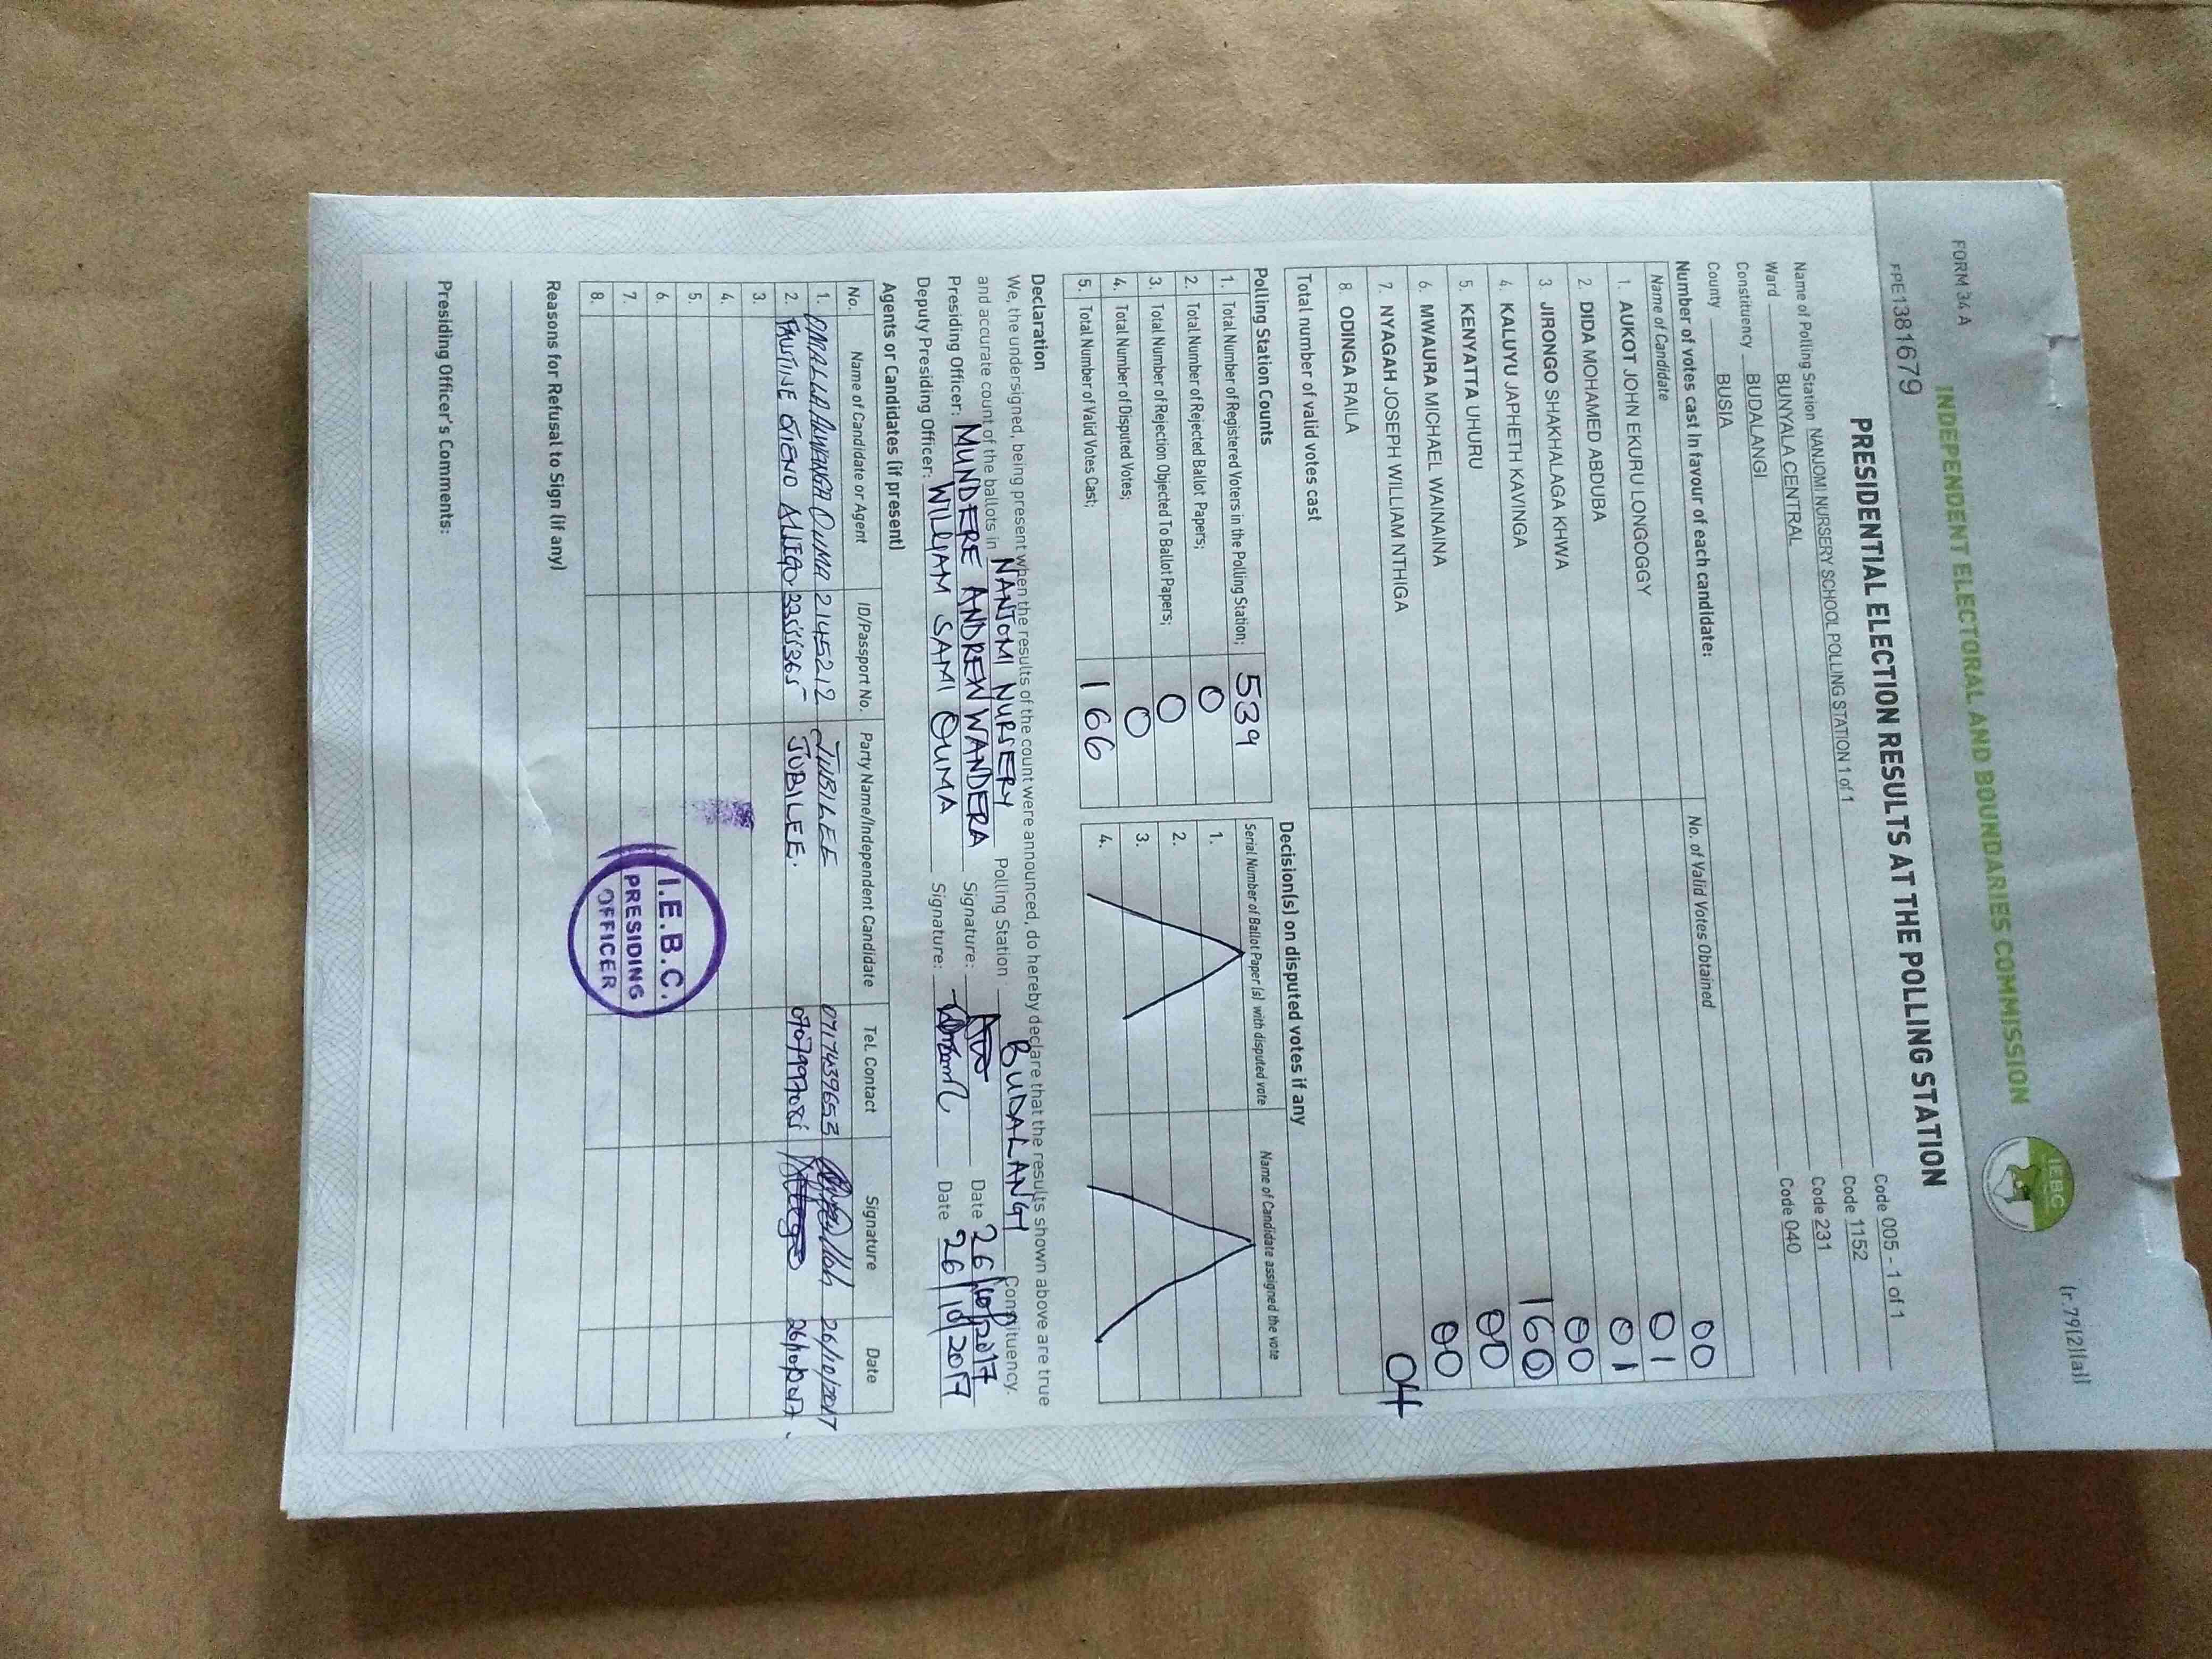 (r.79(2)(a))
FORM 34 A
INDEPENDENT ELECTORAL AND BOUNDARIES COMMISSION
IEBC
FPE1381679
PRESIDENTIAL ELECTION RESULTS AT THE POLLING STATION
Name of Polling Station NANJOMI NURSERY SCHOOL POLLING STATION 1 of 1 Code 005 - 1 of 1
Ward BUNYALA CENTRAL Code 1152
Constituency BUDALANGI Code 231
County BUSIA Code 040
Number of votes cast in favour of each candidate:
Name of Candidate No. of Valid Votes Obtained
1. AUKOT JOHN EKURU LONGOGGY 00
2. DIDA MOHAMED ABDUBA 01
3. JIRONGO SHAKHALAGA KHWA 01
4. KALUYU JAPHETH KAVINGA 00
5. KENYATTA UHURU 160
6. MWAURA MICHAEL WAINAINA 00
7. NYAGAH JOSEPH WILLIAM NTHIGA 00
8. ODINGA RAILA 04
Total number of valid votes cast
Polling Station Counts
1. Total Number of Registered Voters in the Polling Station; 539
2. Total Number of Rejected Ballot Papers; 0
3. Total Number of Rejection Objected To Ballot Papers; 0
4. Total Number of Disputed Votes; 0
5. Total Number of Valid Votes Cast; 166
Decision(s) on disputed votes if any
Serial Number of Ballot Paper (s) with disputed vote Name of Candidate assigned the vote
1.
2.
3.
4.
Declaration
We, the undersigned, being present when the results of the count were announced, do hereby declare that the results shown above are true
and accurate count of the ballots in NANJOMI NURSERY Polling Station BUDALANGI Constituency.
Presiding Officer: MUNDERE ANDREW WANDERA Signature: Date 26/10/2017
Deputy Presiding Officer: WILLIAM SAMI OUMA Signature: Date 26/10/2017
Agents or Candidates (if present)
No. Name of Candidate or Agent ID/Passport No. Party Name/Independent Candidate Tel. Contact Signature Date
1. OUMA 2145212 JUBILEE 0717439653 26/10/2017
2. FAUSTINE JUBILEE. 26/10/2017
3
4.
5.
6.
7.
8.
I.E.B.C.
PRESIDING
OFFICER
Reasons for Refusal to Sign (if any)
Presiding Officer's Comments: